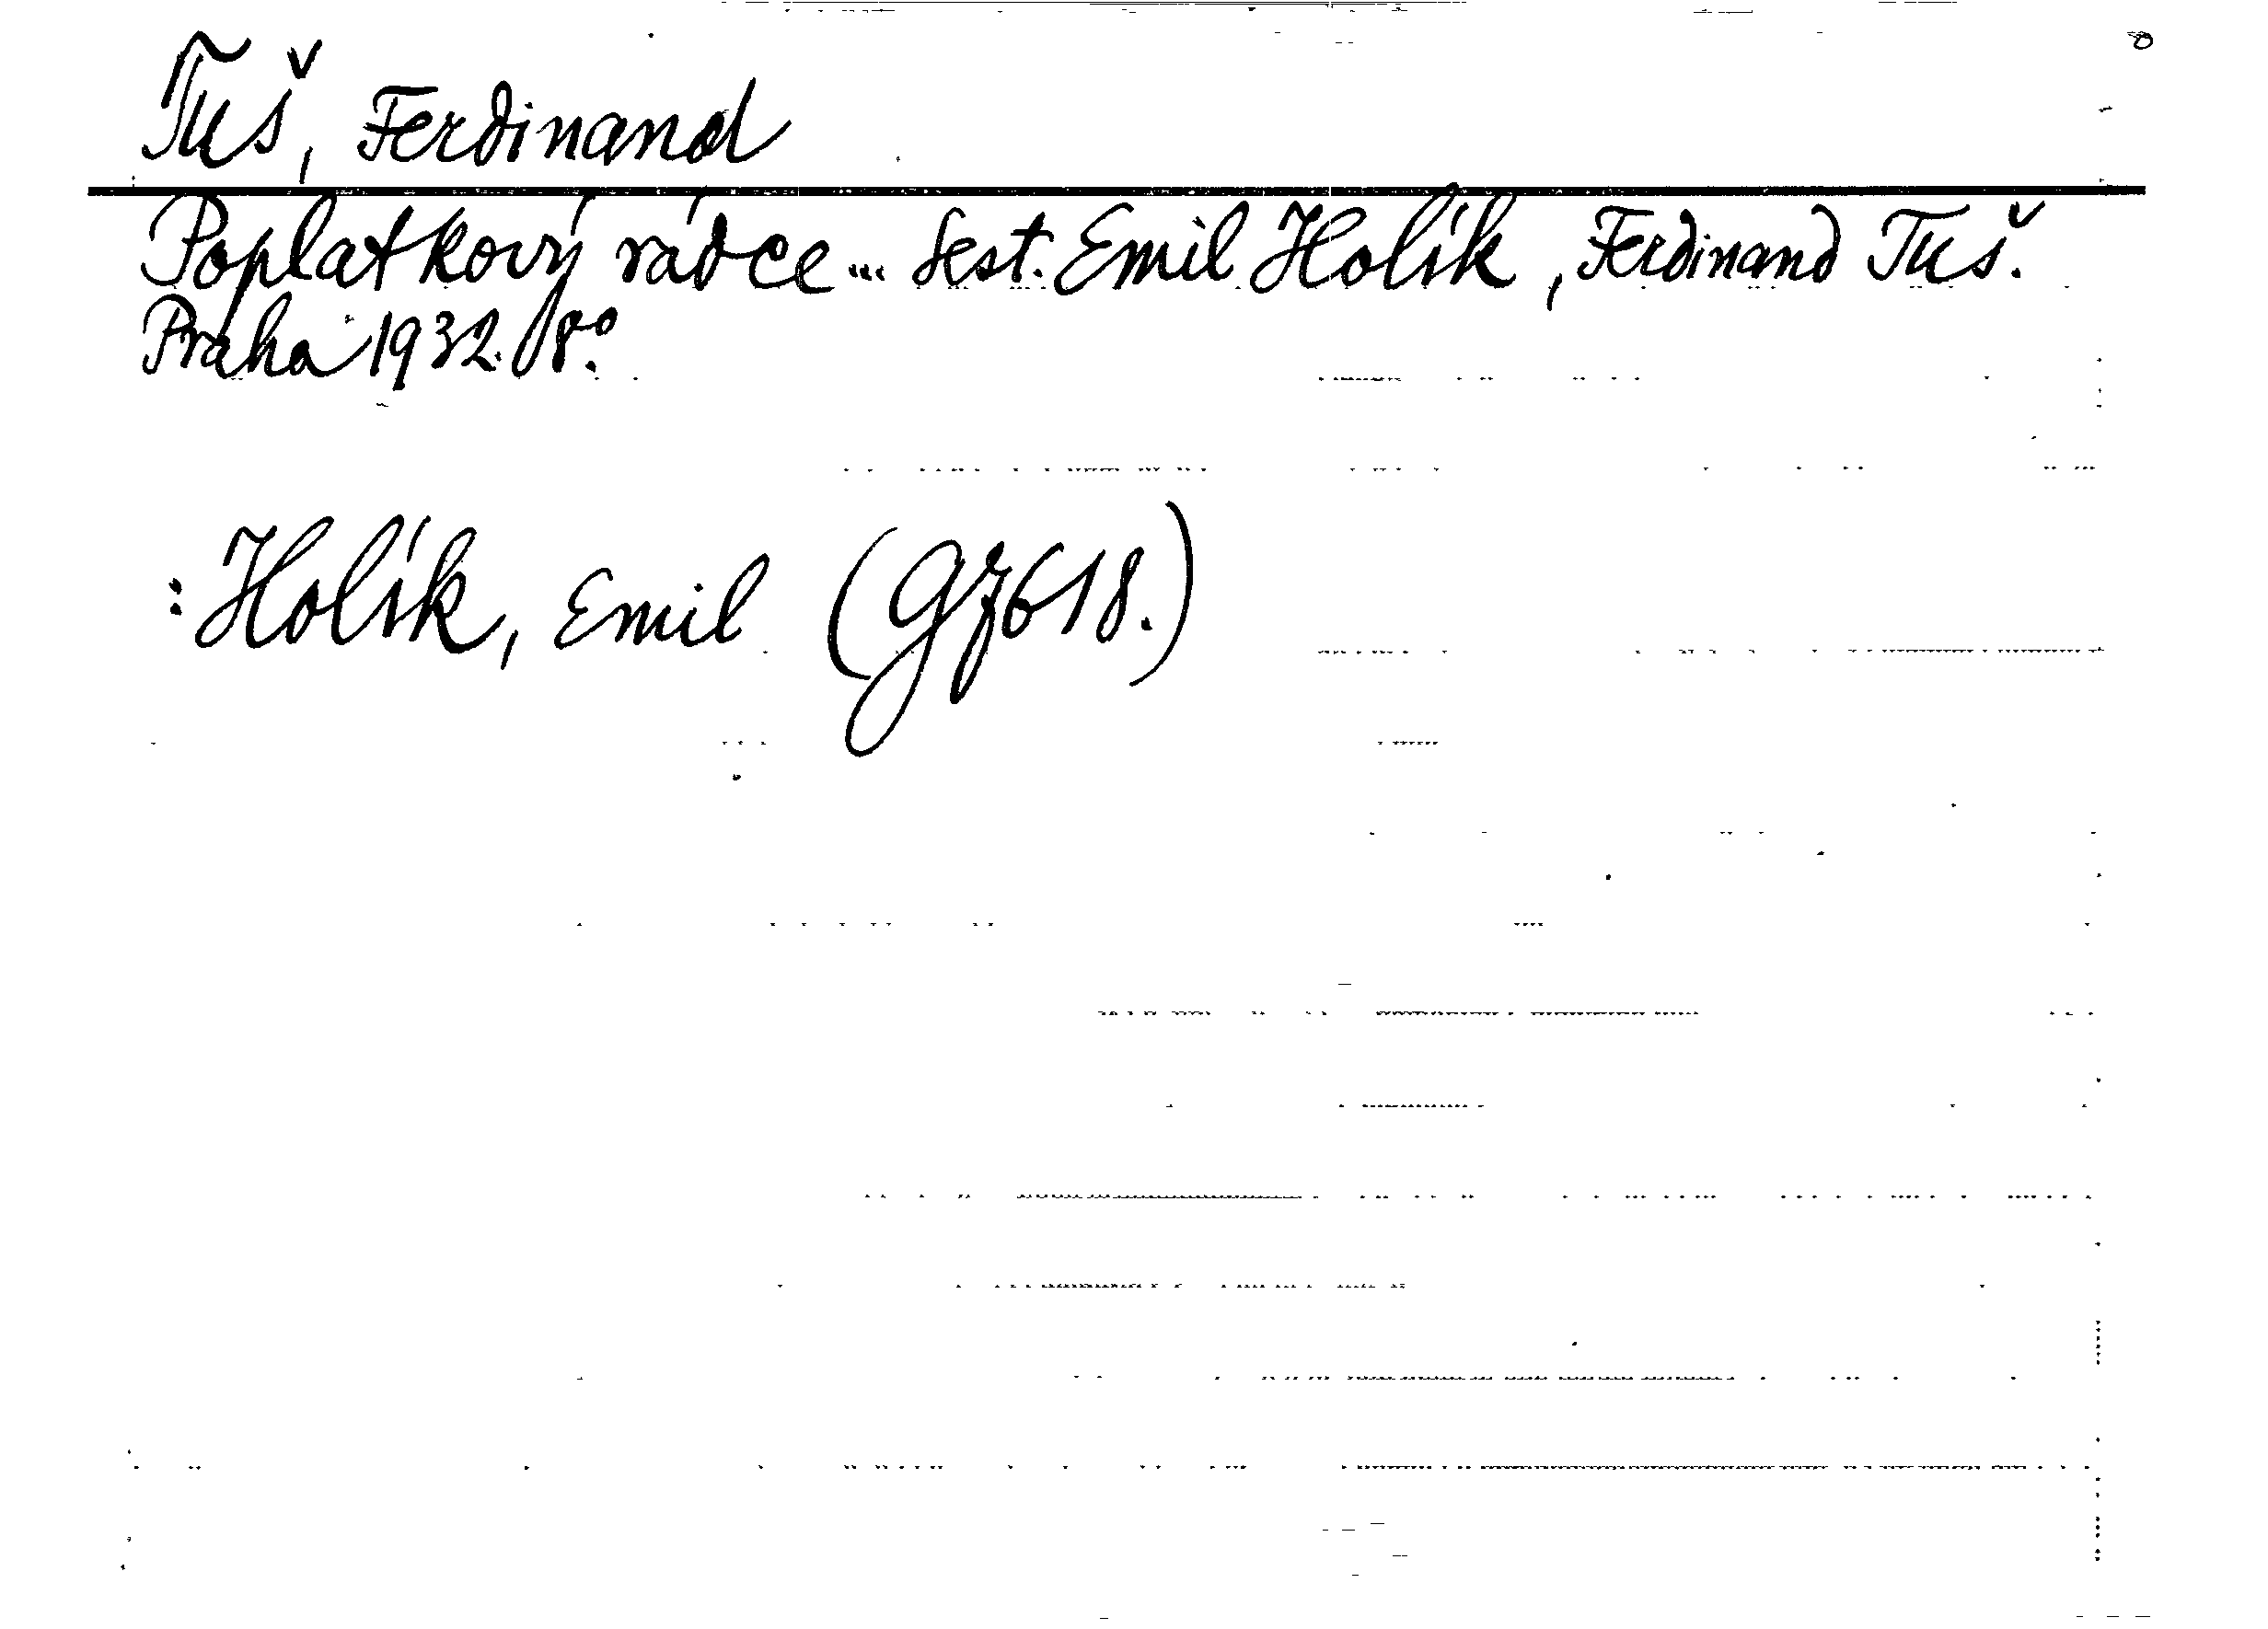 Tuš, Ferdinand
Poplatkový rádce... Sest. Emil Holík, Ferdinand Tuš.
Praha 1932. 8º.
: Holík, Emil (g7618.)